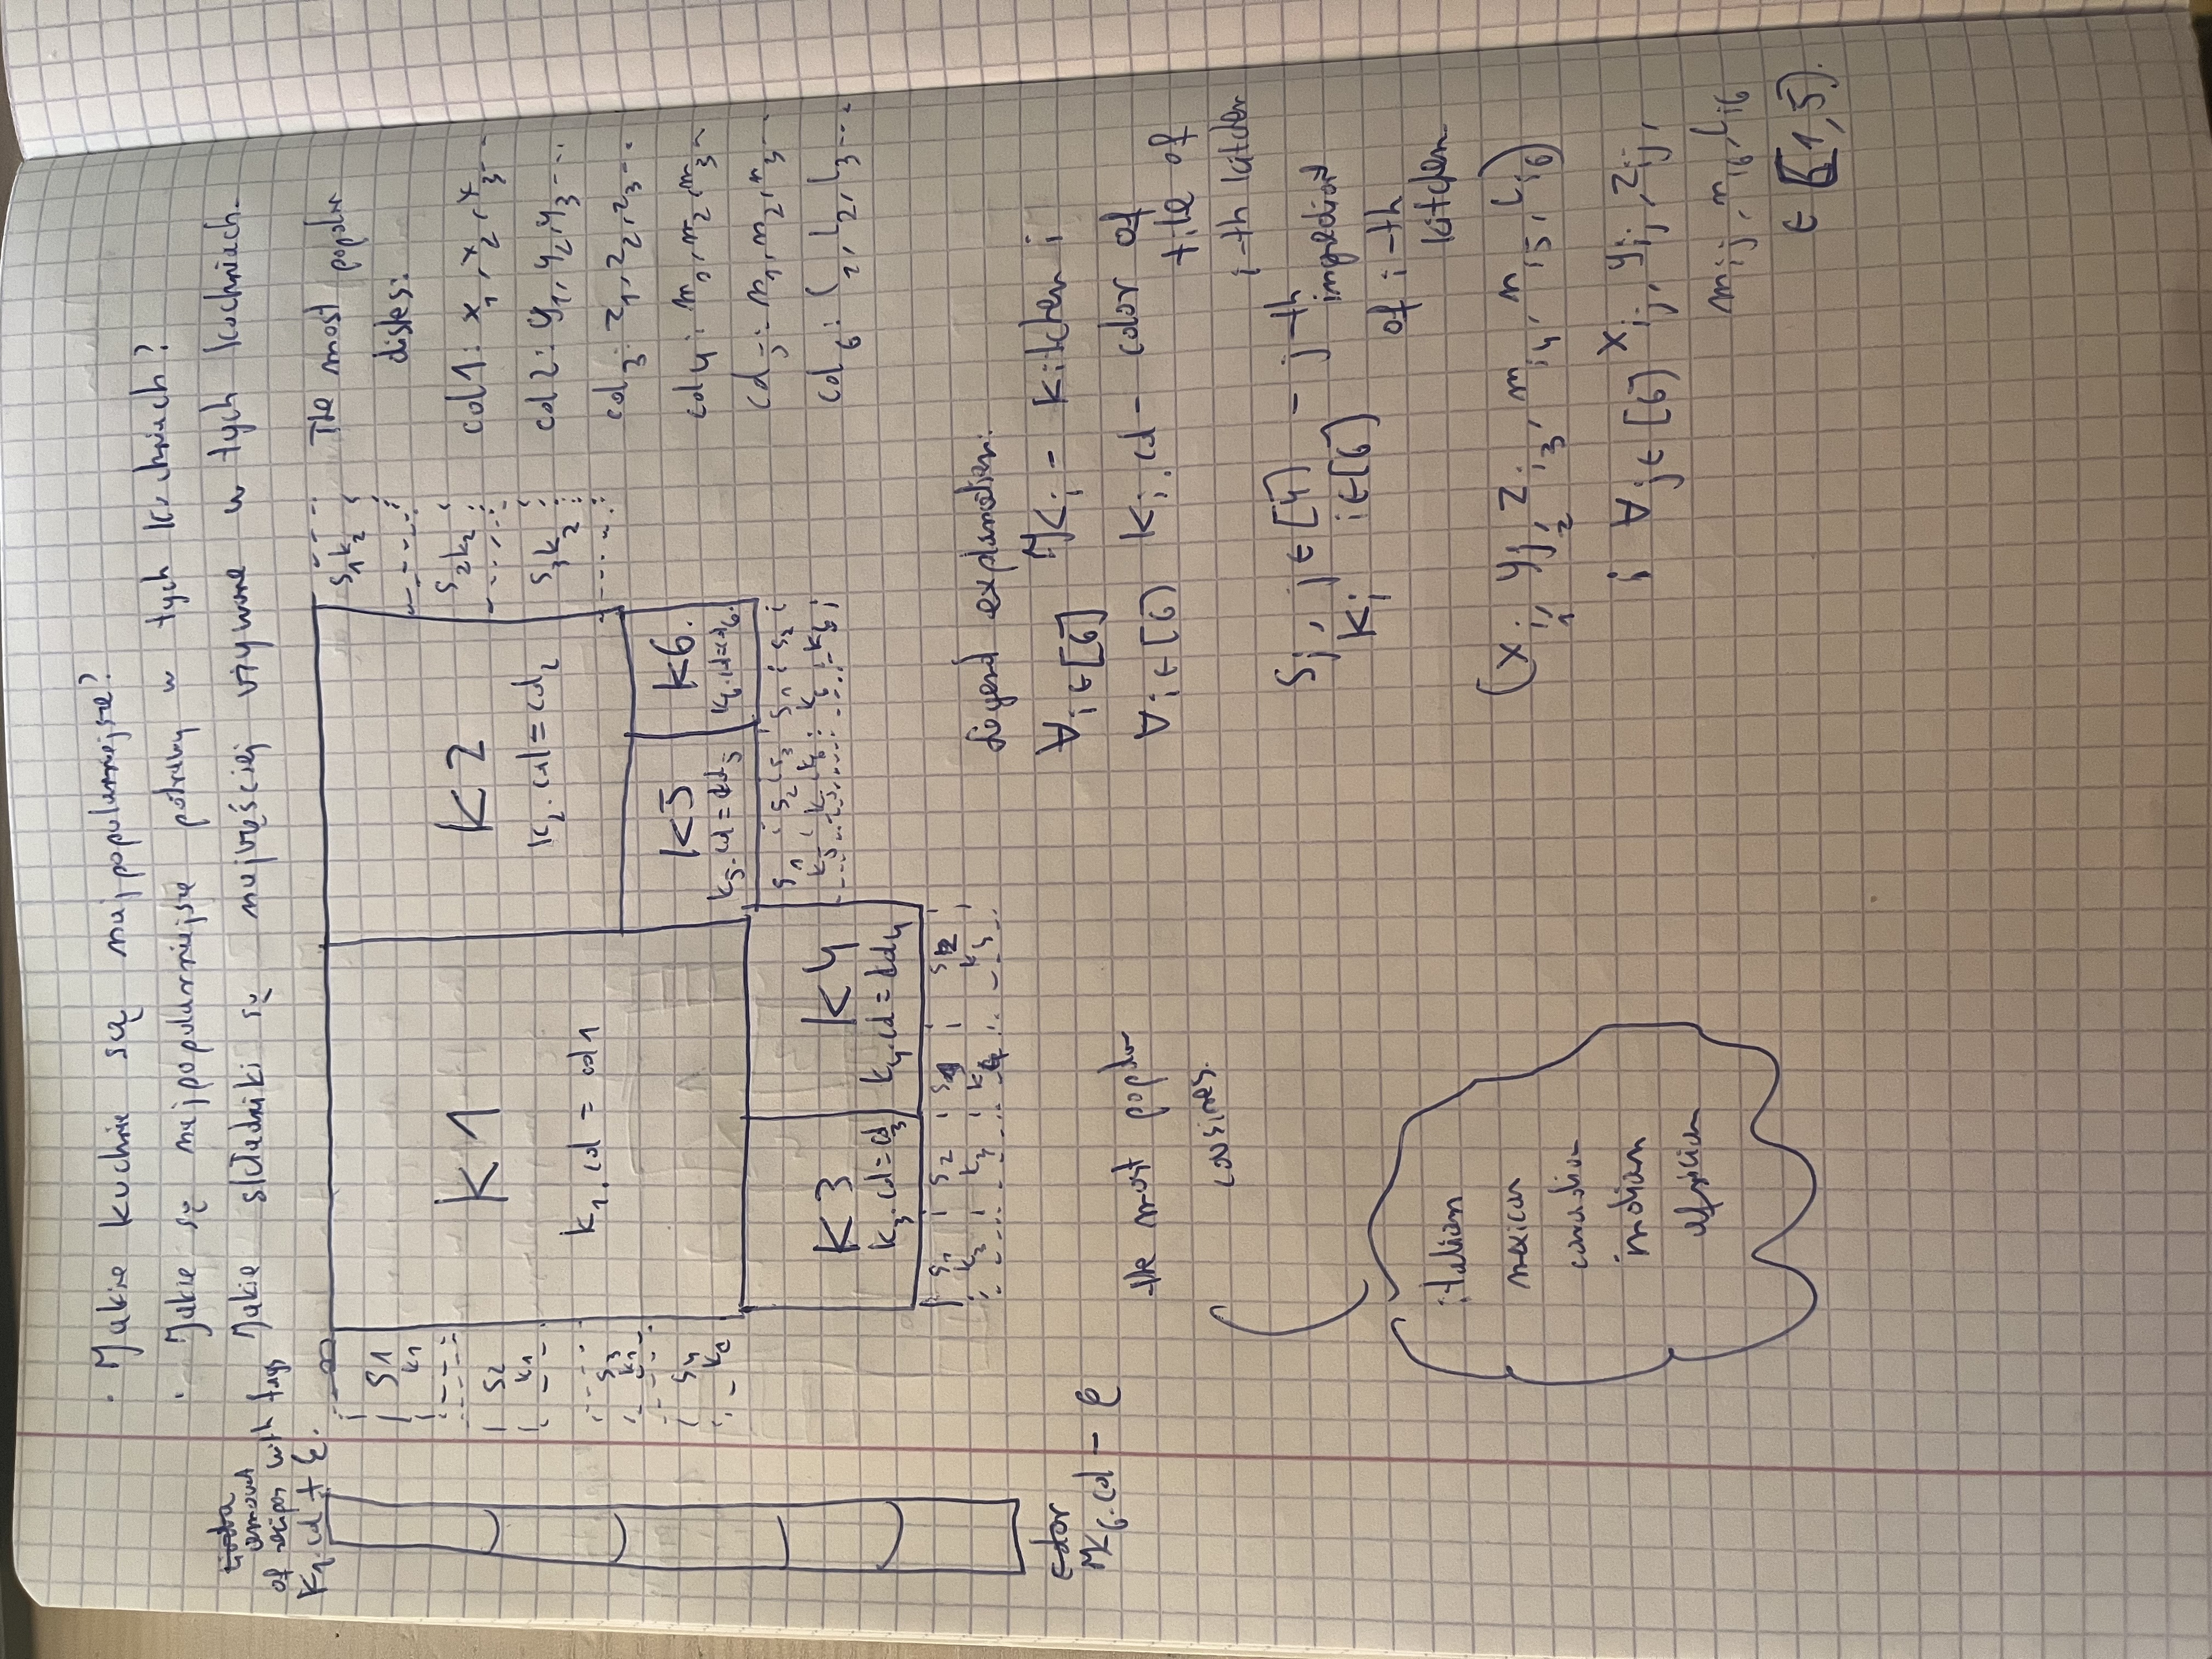 · Jakie kuchnie są najpopularniejsze?
· Jakie są najpopularniejsze potrawy w tych kuchniach?
Jakie składniki są najczęściej używane w tych kuchniach.
amount
of recipes with tags
K1.col + ε.
S1
k1
S2
k1
S3
k1
S4
K1
k1.col = col1
K2
k2.col = col2
S1k2
S2k2
S3k2
K5
k5.col = col5
K6.
k6.col=col6.
K3
k3.col=col3
K4
k4.col = col4
S1 S2 S3 S1 S2
k5 k5 k6 k6
S1 S2
k3 k3
The most popular
dishes:
col1: x1, x2, x3...
col2: y1, y2, y3...
col3: z1, z2, z3...
col4: m1, m2, m3
col5: n1, n2, n3...
col6: l1, l2, l3...
color
K6.col - ε
the most popular
cousines.
italian
mexican
canadian
indian
african
Legend explanation:
∀i∈[6] Ki - kitchen i
∀i∈[6] Ki.col - color of
title of
i-th kitchen
Sj, j∈[4] - j-th
ingredient
Ki i∈[6]
of i-th
kitchen
(xi1, yj2, zi3, mi4, ni5, li6)
i ∀j∈[6] xij, yij, zij,
mij, ni6, li6
∈ [1,5).